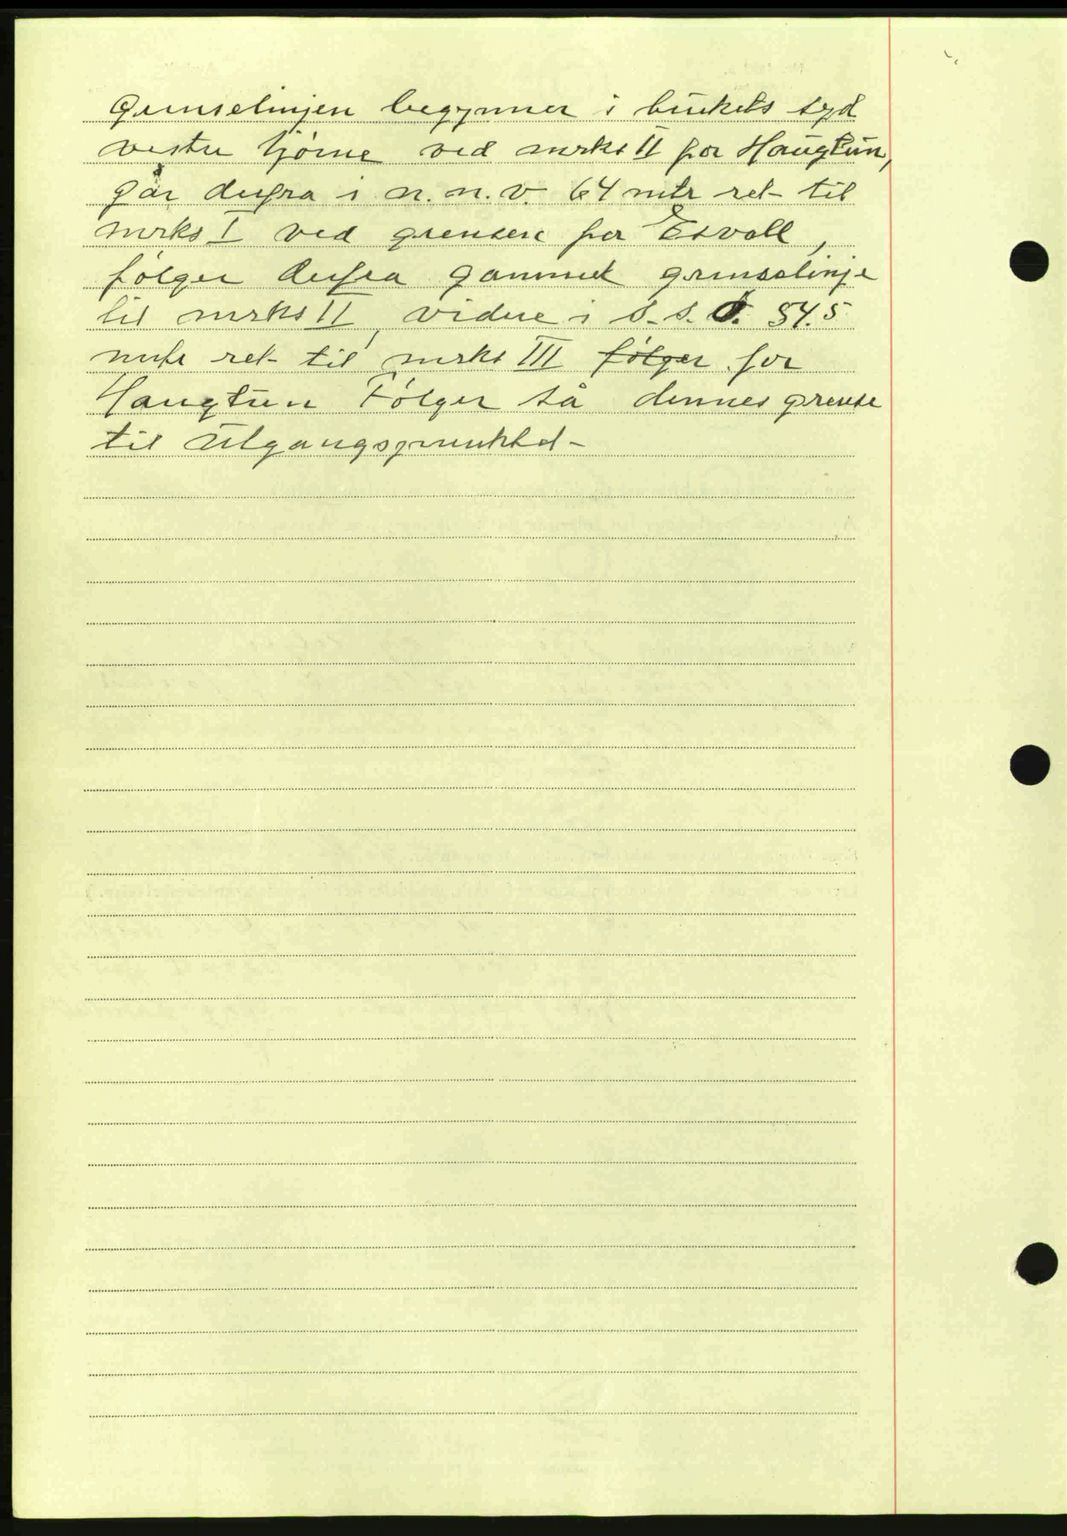 Grenselinjen begynner i brukets syd
vestre hjørne ved merke II for Haugtun,
går derfra i n.n.v. 64 mtr ret til
merke I ved grensen for Esvoll,
følger derfra gammel grenselinje
til merke II, videre i s.s.ø. 54.5
mtr ret til merke III følger for
Haugtun Følger så dennes grense
til utgangspunktet-